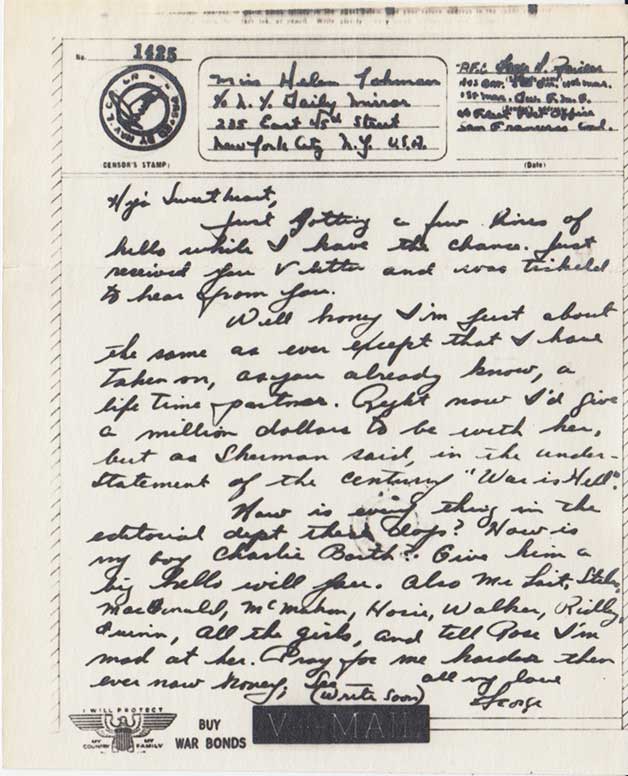 No. 1425
PASSED BY
CENSOR'S STAMP
Miss Helen Lohman
c/o N.Y. Daily Mirror
235 East 45th Street
New York City N.Y. U.S.A.
P.F.C.
Post Office
San Francisco Cal.
(Date)
Hya Sweetheart,
Just jotting a few lines of
hello while I have the chance. Just
received you V letter and was tickled
to hear from you.
Well honey I'm just about
the same as ever except that I have
taken on, as you already know, a
life time partner. Right now I'd give
a million dollars to be with her,
but as Sherman said, in the under-
statement of the century "War is Hell".
How is every thing in the
editorial dept these days? How is
my boy Charlie Barth? Give him a
big hello will you. Also Mr.
MacDonald, McMahon, Hosie, Walker,
Quinn, all the girls, and tell Rose I'm
mad at her. Pray for me harder then
ever now honey, all my love
(Write soon) George
I WILL PROTECT
MY COUNTRY MY FAMILY
BUY
WAR BONDS
V - MAIL